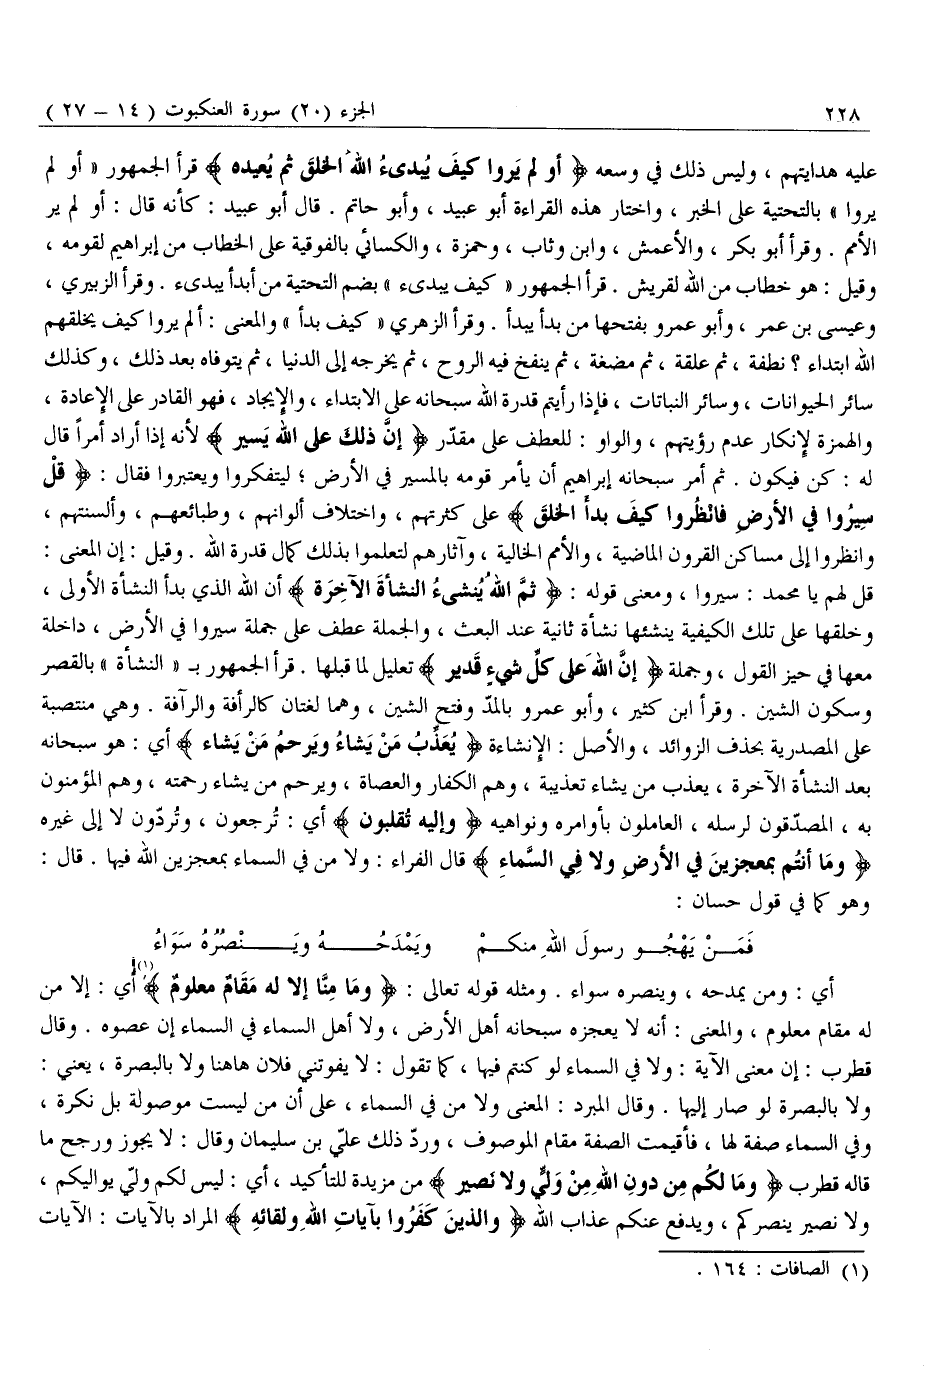 ٢٢٨ الجزء (٢٠) سورة العنكبوت ( ١٤ – ٢٧ )
عليه هدايتهم ، وليس ذلك في وسعه ﴿ أو لم يَروا كيفَ يُبدىءُ اللهُ الخلقَ ثم يُعيده ﴾ قرأ الجمهور « أو لم
يروا » بالتحتية على الخبر ، واختار هذه القراءة أبو عبيد ، وأبو حاتم . قال أبو عبيد : كأنه قال : أو لم ير
الأمم . وقرأ أبو بكر ، والأعمش ، وابن وثاب ، وحمزة ، والكسائي بالفوقية على الخطاب من إبراهيم لقومه ،
وقيل : هو خطاب من الله لقريش . قرأ الجمهور « كيف يبدىء » بضم التحتية من أبدأ يبدىء . وقرأ الزبيري ،
وعيسى بن عمر ، وأبو عمرو بفتحها من بدأ يبدأ . وقرأ الزهري « كيف بدأ » والمعنى : ألم يروا كيف يخلقهم
الله ابتداء ؟ نطفة ، ثم علقة ، ثم مضغة ، ثم ينفخ فيه الروح ، ثم يخرجه إلى الدنيا ، ثم يتوفاه بعد ذلك ، وكذلك
سائر الحيوانات ، وسائر النباتات ، فإذا رأيتم قدرة الله سبحانه على الابتداء ، والإيجاد ، فهو القادر على الإعادة ،
والهمزة لإنكار عدم رؤيتهم ، والواو : للعطف على مقدّر ﴿ إنَّ ذلكَ على اللهِ يَسير ﴾ لأنه إذا أراد أمراً قال
له : كن فيكون . ثم أمر سبحانه إبراهيم أن يأمر قومه بالمسير في الأرض ؛ ليتفكروا ويعتبروا فقال : ﴿ قلْ
سِيرُوا في الأرضِ فانْظُروا كيفَ بدأَ الخلقَ ﴾ على كثرتهم ، واختلاف ألوانهم ، وطبائعهم ، وألسنتهم ،
وانظروا إلى مساكن القرون الماضية ، والأمم الخالية ، وآثارهم لتعلموا بذلك كمال قدرة الله . وقيل : إن المعنى :
قل لهم يا محمد : سيروا ، ومعنى قوله : ﴿ ثمَّ اللهُ يُنشىءُ النشأةَ الآخِرَة ﴾ أن الله الذي بدأ النشأة الأولى ،
وخلقها على تلك الكيفية ينشئها نشأة ثانية عند البعث ، والجملة عطف على جملة سيروا في الأرض ، داخلة
معها في حيز القول ، وجملة ﴿ إنَّ اللهَ على كلِّ شيءٍ قَدير ﴾ تعليل لما قبلها . قرأ الجمهور بـ « النشأة » بالقصر
وسكون الشين . وقرأ ابن كثير ، وأبو عمرو بالمدّ وفتح الشين ، وهما لغتان كالرأفة والرآفة . وهي منتصبة
على المصدرية بحذف الزوائد ، والأصل : الإنشاءة ﴿ يُعَذِّبُ مَنْ يَشاءُ ويَرحمُ مَنْ يَشاء ﴾ أي : هو سبحانه
بعد النشأة الآخرة ، يعذب من يشاء تعذيبة ، وهم الكفار والعصاة ، ويرحم من يشاء رحمته ، وهم المؤمنون
به ، المصدّقون لرسله ، العاملون بأوامره ونواهيه ﴿ وإليه تُقلبون ﴾ أي : تُرجعون ، وتُردّون لا إلى غيره
﴿ ومَا أنتُم بمعجزينَ في الأرضِ ولا فِي السَّماءِ ﴾ قال الفراء : ولا من في السماء بمعجزين الله فيها . قال :
وهو كما في قول حسان :
فَمَـــنْ يَهْجُـــو رسولَ اللهِ منكــمْ ويَمْدَحُـــــهُ ويَـــــنْصُرُهُ سَوَاءُ
أي : ومن يمدحه ، وينصره سواء . ومثله قوله تعالى : ﴿ ومَا مِنَّا إلا له مَقَامٌ معلومٌ ﴾(١) أي : إلا من
له مقام معلوم ، والمعنى : أنه لا يعجزه سبحانه أهل الأرض ، ولا أهل السماء في السماء إن عصوه . وقال
قطرب : إن معنى الآية : ولا في السماء لو كنتم فيها ، كما تقول : لا يفوتني فلان هاهنا ولا بالبصرة ، يعني :
ولا بالبصرة لو صار إليها . وقال المبرد : المعنى ولا من في السماء ، على أن من ليست موصولة بل نكرة ،
وفي السماء صفة لها ، فأقيمت الصفة مقام الموصوف ، وردّ ذلك عليّ بن سليمان وقال : لا يجوز ورجح ما
قاله قطرب ﴿ ومَا لكُم مِن دونِ اللهِ مِنْ وَليٍّ ولا نَصير ﴾ من مزيدة للتأكيد ، أي : ليس لكم وليّ يواليكم ،
ولا نصير ينصركم ، ويدفع عنكم عذاب الله ﴿ والذينَ كَفَرُوا بآياتِ اللهِ ولقائهِ ﴾ المراد بالآيات : الآيات
(١) الصافات : ١٦٤ .